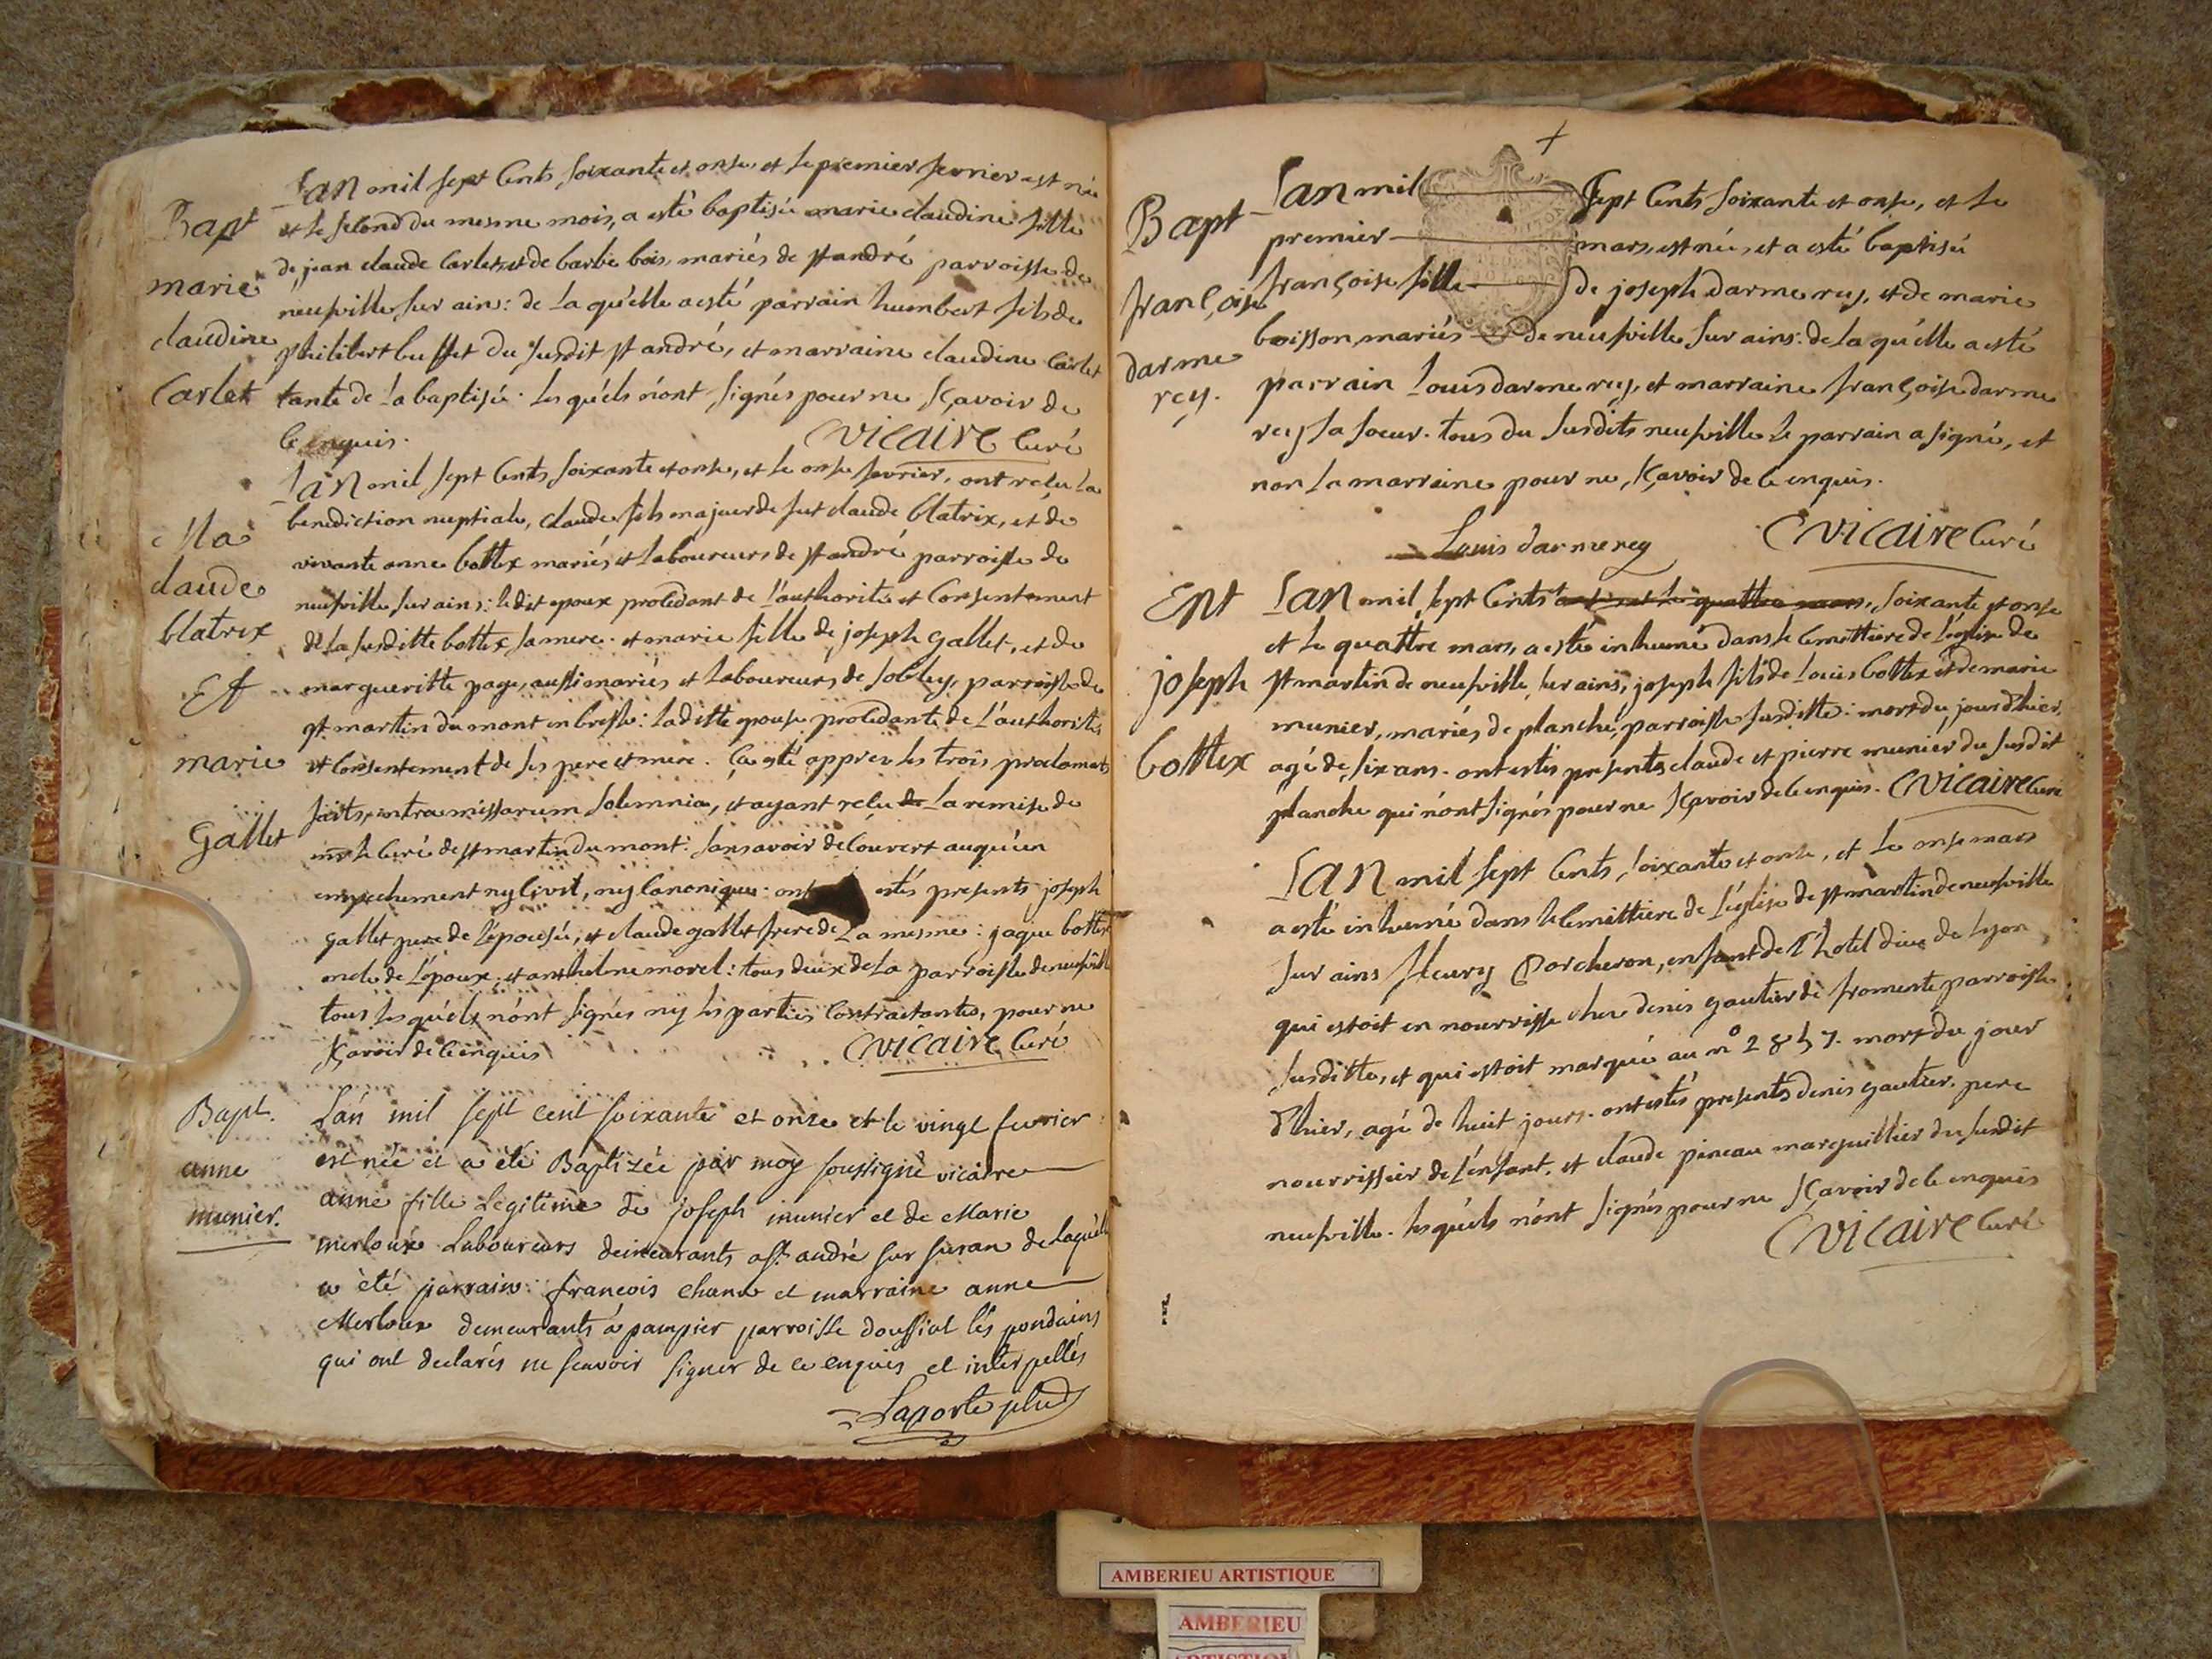 Bapt
marie
claudine
Carlet
Lan mil sept Cents soixante et onse, et le premier fevrier est née
et le second du mesme mois, a esté baptisée marie claudine fille
de jean claude Carlet, et de barbe bois, mariés de st andré parroisse de
neufville sur ain: de la qu'elle a esté parrain humbert fils de
philibert buffet du susdit st andré, et marraine claudine Carlet
tante de la baptisée. les quéls n'ont signés pour ne sçavoir de
ce enquis.
Vicaire Curé
Ma
claude
blatrix
Et
marie
Gallet
Lan mil sept Cents soixante et onse, et le onse fevrier, ont reçu la
benediction nuptiale, claude fils majeur de fut claude blatrix, et de
vivante anne bottex mariés et laboureurs de st andré parroisse de
neufville sur ains: le dit epoux procedant de l'authorité et Consentement
de la susditte bottex sa mere. et marie fille de joseph gallet, et de
margueritte page, aussi mariés et laboureurs de soblay, parroisse de
st martin du mont en bresse: laditte epouse procedante de l'authorité
et Consentement de ses pere et mere. Ça esté apprez les trois proclamats
faits, intra missarum solemnia, et ayant reçu de la remise de
mr le Curé de st martin du mont: sans avoir decouvert auqu'un
empechement ny Civil, ny Canonique: ont estés presents joseph
gallet pere de l'epousée, et claude gallet frere de la mesme: jaque bottex
oncle de l'époux, et anthelme morel: tous deux de la parroisse de neufville
tous les quéls n'ont signés ny les parties Contractantes, pour ne
sçavoir de ce enquis
Vicaire Curé
Bapt.
anne
munier.
Lan mil sept cent soixante et onze et le vingt fevrier
est née et a été Baptizée par moy soussigné vicaire
anne fille Legitime de joseph munier et de Marie
merloux Laboureurs demeurants a st andré sur suran de laquelle
a été parrain françois chanu et marraine anne
Merloux demeurants a pampier parroisse doussiat les pondains
qui ont declarés ne scavoir signer de ce enquis et interpellés
Laporte
Bapt
françoise
darme
rey.
Lan mil sept Cents soixante et onse, et le
premier mars, est née, et a esté baptisée
françoise fille de joseph darmerey, et de marie
boisson, mariés de neufville sur ains: de la qu'elle a esté
parrain Louis darmerey, et marraine françoise darme
rey sa soeur. tous du susdits neufville le parrain a signé, et
non la marraine pour ne sçavoir de ce enquis.
Louis darmerey
Vicaire Curé
Ent
joseph
bottex
Lan mil sept Cents soixante et onse
et le quattre mars, a esté inhumé dans le Cemettiere de l'eglise de
st martin de neufville sur ains, joseph fils de Louis bottex et de marie
munier, mariés de planche, parroisse susditte: mort du jour d'hier,
agé de six ans. ont estés presents claude et pierre munier du susdit
planche qui n'ont signés pour ne sçavoir de ce enquis. Vicaire Curé
Lan mil sept Cents soixante et onse, et le onse mars
a esté inhumé dans le Cemettiere de l'église de st martin de neufville
sur ains fleury Porcheron, enfant de l'hotel dieu de Lyon
qui estoit en nourrisse chez denis gautier de fromente parroisse
susditte, et qui estoit marqué au n° 2857. mort du jour
d'hier, agé de huit jours. ont estés presents denis gautier pere
nourrissier de l'enfant, et claude pineau marguillier du susdit
neufville. les quéls n'ont signés pour ne sçavoir de ce enquis
Vicaire Curé
AMBERIEU ARTISTIQUE
AMBERIEU
ARTISTIQUE